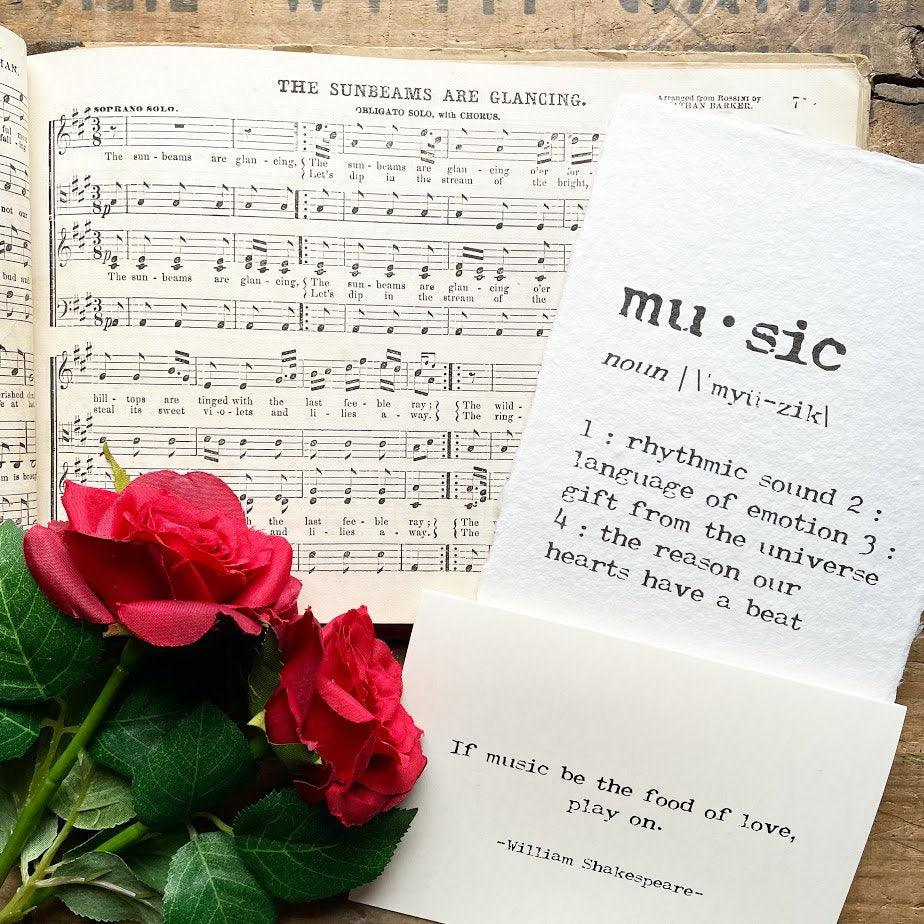 THE SUNBEAMS ARE GLANCING.
Arranged from ROSSINI by
NATHAN BARKER.
SOPRANO SOLO.
OBLIGATO SOLO, with CHORUS.
The sun - beams are glan - cing, { The sun - beams are glan - cing o'er
{ Let's dip in the stream of the bright,
The sun - beams are glan - cing, { The sun - beams are glan - cing o'er
{ Let's dip in the stream of the
hill - tops are tinged with the last fee - ble ray; } { The wild -
steal its sweet vi - o - lets and li - lies a - way. } { The ring -
the last fee - ble ray; } { The
and li - lies a - way. } { The
not our
bud and
mu•sic
noun |\ˈmyü-zik\
1 : rhythmic sound 2 :
language of emotion 3 :
gift from the universe
4 : the reason our
hearts have a beat
If music be the food of love,
play on.
-William Shakespeare-